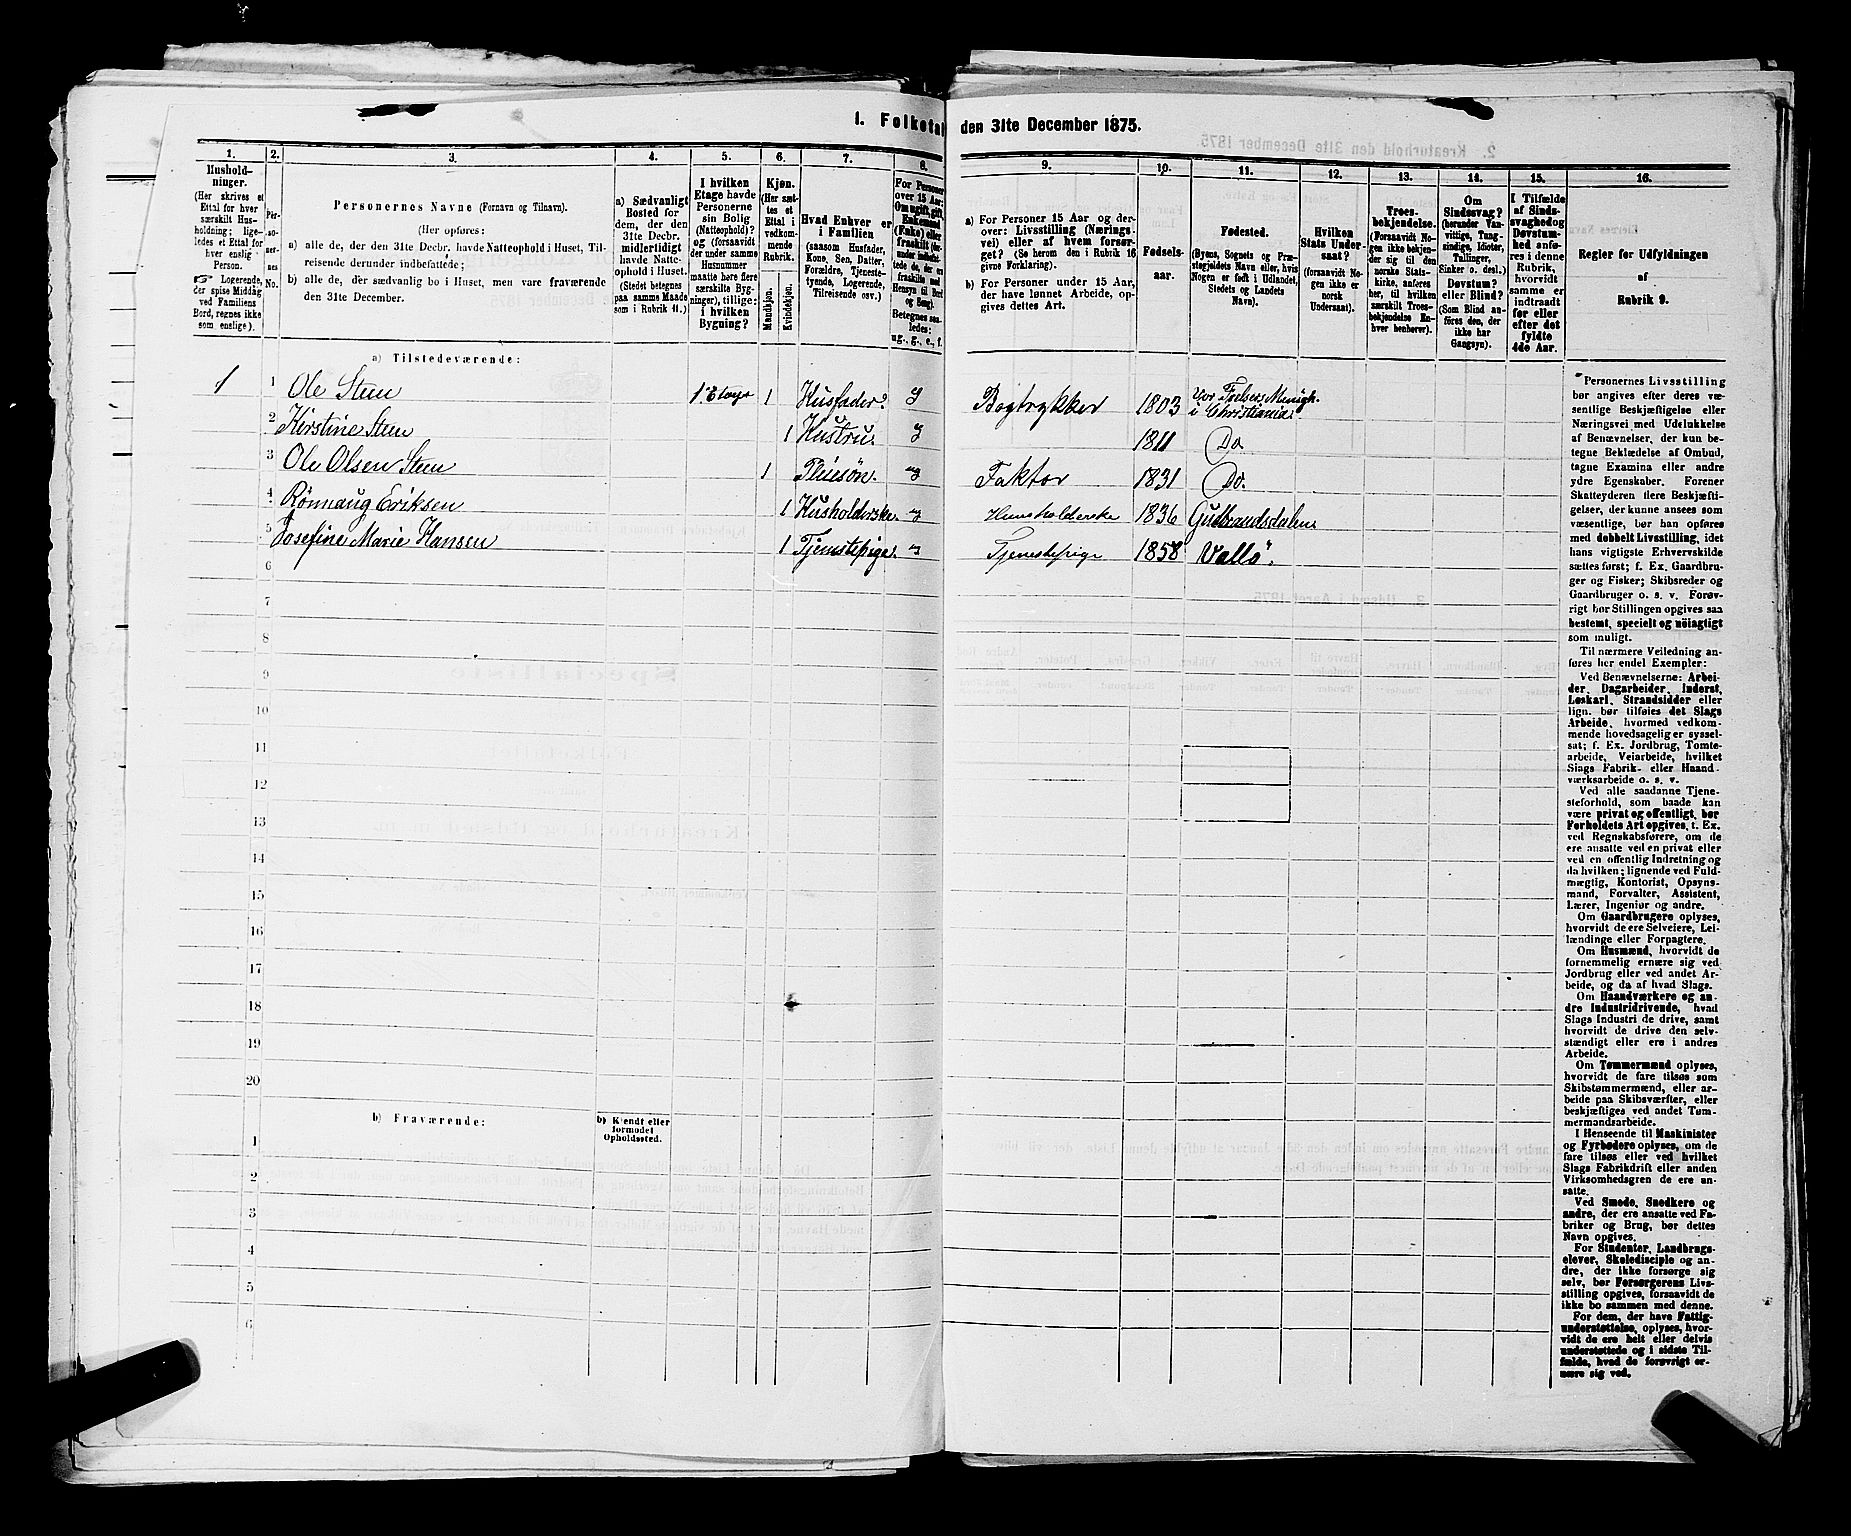 1. Folketal den 31te December 1875.
1. 2. 3. 4. 5. 6. 7. 8. 9. 10. 11. 12. 13. 14. 15. 16.
Hushold-
ninger.
(Her skrives et
Ettal for hver
særskilt Hus-
holdning; lige-
ledes et Ettal for
hver enslig
Person.
☞ Logerende,
der spise Middag
ved Familiens
Bord, regnes ikke
som enslige).
Per-
so-
ner-
nes
No.
Personernes Navne (Fornavn og Tilnavn).
(Her opføres:
a) alle de, der den 31te Decbr. havde Natteophold i Huset, Til-
reisende derunder indbefattede;
b) alle de, der sædvanlig bo i Huset, men vare fraværende
den 31te December.
a) Sædvanligt
Bosted for
dem, der den
31te Decbr.
midlertidigt
havde Natte-
ophold i Huset.
(Stedet betegnes
paa samme Maade
som i Rubrik 11.)
I hvilken
Etage havde
Personerne
sin Bolig
(Natteophold)?
og (forsaavidt
der under samme
Husnummer
maatte høre flere
særskilte Byg-
ninger), tillige:
i hvilken
Bygning?
Kjøn.
(Her sæt-
tes et
Ettal i
vedkom-
mende
Rubrik.
Mandkjøn.
Kvindekjøn.
Hvad Enhver er
i Familien
(saasom Husfader,
Kone, Søn, Datter,
Forældre, Tjeneste-
tyende, Logerende,
Tilreisende osv.)
For Personer
over 15 Aar:
Om ugift, gift,
Enkemand
(Enke) eller
fraskilt (der-
under indbefat-
tede de, der ere
fraskilte med
Hensyn til Bord
og Seng).
Betegnes saa-
ledes:
ug., g., e., f.
a) For Personer 15 Aar og der-
over: Livsstilling (Nærings-
vei) eller af hvem forsør-
get? (Se herom den i Rubrik 16
givne Forklaring).
b) For Personer under 15 Aar,
der have lønnet Arbeide, op-
gives dettes Art.
Fødsels-
aar.
Fødested.
(Byens, Sognets og Præ-
stegjeldets Navn eller, hvis
Nogen er født i Udlandet,
Stedets og Landets
Navn).
Hvilken
Stats Under-
saat?
(forsaavidt No-
gen ikke er
norsk
Undersaat).
Troes-
bekjendelse.
(Forsaavidt No-
gen ikke bekjen-
der sig til den
norske Stats-
kirke, anføres
her, til hvilken
særskilt Troes-
bekjendelse En-
hver henhører).
Om
Sindssvag?
(herunder Van-
vittige, Tung-
sindige, Idioter,
Tullinger,
Sinker o. desl.)
Døvstum?
eller Blind?
(Som Blind an-
føres den, der
ikke har
Gangsyn).
I Tilfælde
af Sinds-
svaghed og
Døvstum-
hed anfø-
res i denne
Rubrik,
hvorvidt
samme er
indtraadt
før eller
efter det
fyldte
4de Aar.
Regler for Udfyldningen
af
Rubrik 9.
a) Tilstedeværende:
1 1 Ole Steen 1 Etage 1 Husfader g Bogtrykker 1803 Vor Frelsers Menigh. i Christiania.
2 Kirstine Steen 1 Hustru. g 1811 Do.
3 Ole Olsen Steen 1 Pleiesøn. ug Faktor 1831 Do.
4 Rönnaug Eriksen 1 Husholderske ug Huusholderske 1836 Gudbrandsdalen
5 Josefine Marie Hansen 1 Tjenstepige. ug Tjenestepige 1858 Vallö.
6
7
8
9
10
11
12
13
14
15
16
17
18
19
20
b) Fraværende:
b) Kjendt eller
formodet
Opholdssted.
1
2
3
4
5
6
Personernes Livsstilling
bør angives efter deres væ-
sentlige Beskjæftigelse eller
Næringsvei med Udelukkelse
af Benævnelser, der kun be-
tegne Beklædelse af Ombud,
tagne Examina eller andre
ydre Egenskaber. Forener
Skatteyderen flere Beskjæfti-
gelser, der kunne ansees som
væsentlige, bør han opføres
med dobbelt Livsstilling, idet
hans vigtigste Erhvervskilde
sættes først; f. Ex. Gaardbru-
ger og Fisker; Skibsreder og
Gaardbruger o. s. v. Forøv-
rigt bør Stillingen opgives saa
bestemt, specielt og nöiagtigt
som muligt.
Til nærmere Veiledning an-
føres her endel Exempler:
Ved Benævnelserne: Arbei-
der, Dagarbeider, Inderst,
Løskarl, Strandsidder eller
lign. bør tilføies det Slags
Arbeide, hvormed vedkom-
mende hovedsagelig er syssel-
sat; f. Ex. Jordbrug, Tomte-
arbeide, Veiarbeide, hvilket
Slags Fabrik- eller Haand-
værksarbeide o. s. v.
Ved alle saadanne Tjene-
steforhold, som baade kan
være privat og offentligt, bør
Forholdets Art opgives, f. Ex.
ved Regnskabsførere, om de
ere ansatte ved en privat eller
ved en offentlig Indretning og
da hvilken; lignende ved Fuld-
mægtig, Kontorist, Opsyns-
mand, Forvalter, Assistent,
Lærer, Ingeniør og andre.
Om Gaardbrugere oplyses,
hvorvidt de ere Selveiere, Lei-
lændinge eller Forpagtere.
Om Husmænd, hvorvidt de
fornemmelig ernære sig ved
Jordbrug eller ved andet Ar-
beide, og da af hvad Slags.
Om Haandværkere og an-
dre Industridrivende, hvad
Slags Industri de drive, samt
hvorvidt de drive den selv-
stændigt eller ere i andres
Arbeide.
Om Tømmermænd oplyses,
hvorvidt de fare tilsøs som
Skibstømmermænd, eller ar-
beide paa Skibsværfter, eller
beskjæftiges ved andet Tøm-
mermandsarbeide.
I Henseende til Maskinister
og Fyrbødere oplyses, om de
fare tilsøs eller ved hvilket
Slags Fabrikdrift eller anden
Virksomhedsgren de ere an-
satte.
Ved Smede, Snedkere og
andre, der ere ansatte ved Fa-
briker og Brug, bør dettes
Navn opgives.
For Studenter, Landbrugs-
elever, Skoledisciple og an-
dre, der ikke forsørge sig
selv, bør Forsørgerens Livs-
stilling opgives, forsaavidt de
ikke bo sammen med denne.
For dem, der have Fattig-
understøttelse, oplyses, hvor-
vidt de ere helt eller delvis
understøttede og i sidste Til-
fælde, hvad de forøvrigt er-
nære sig ved.